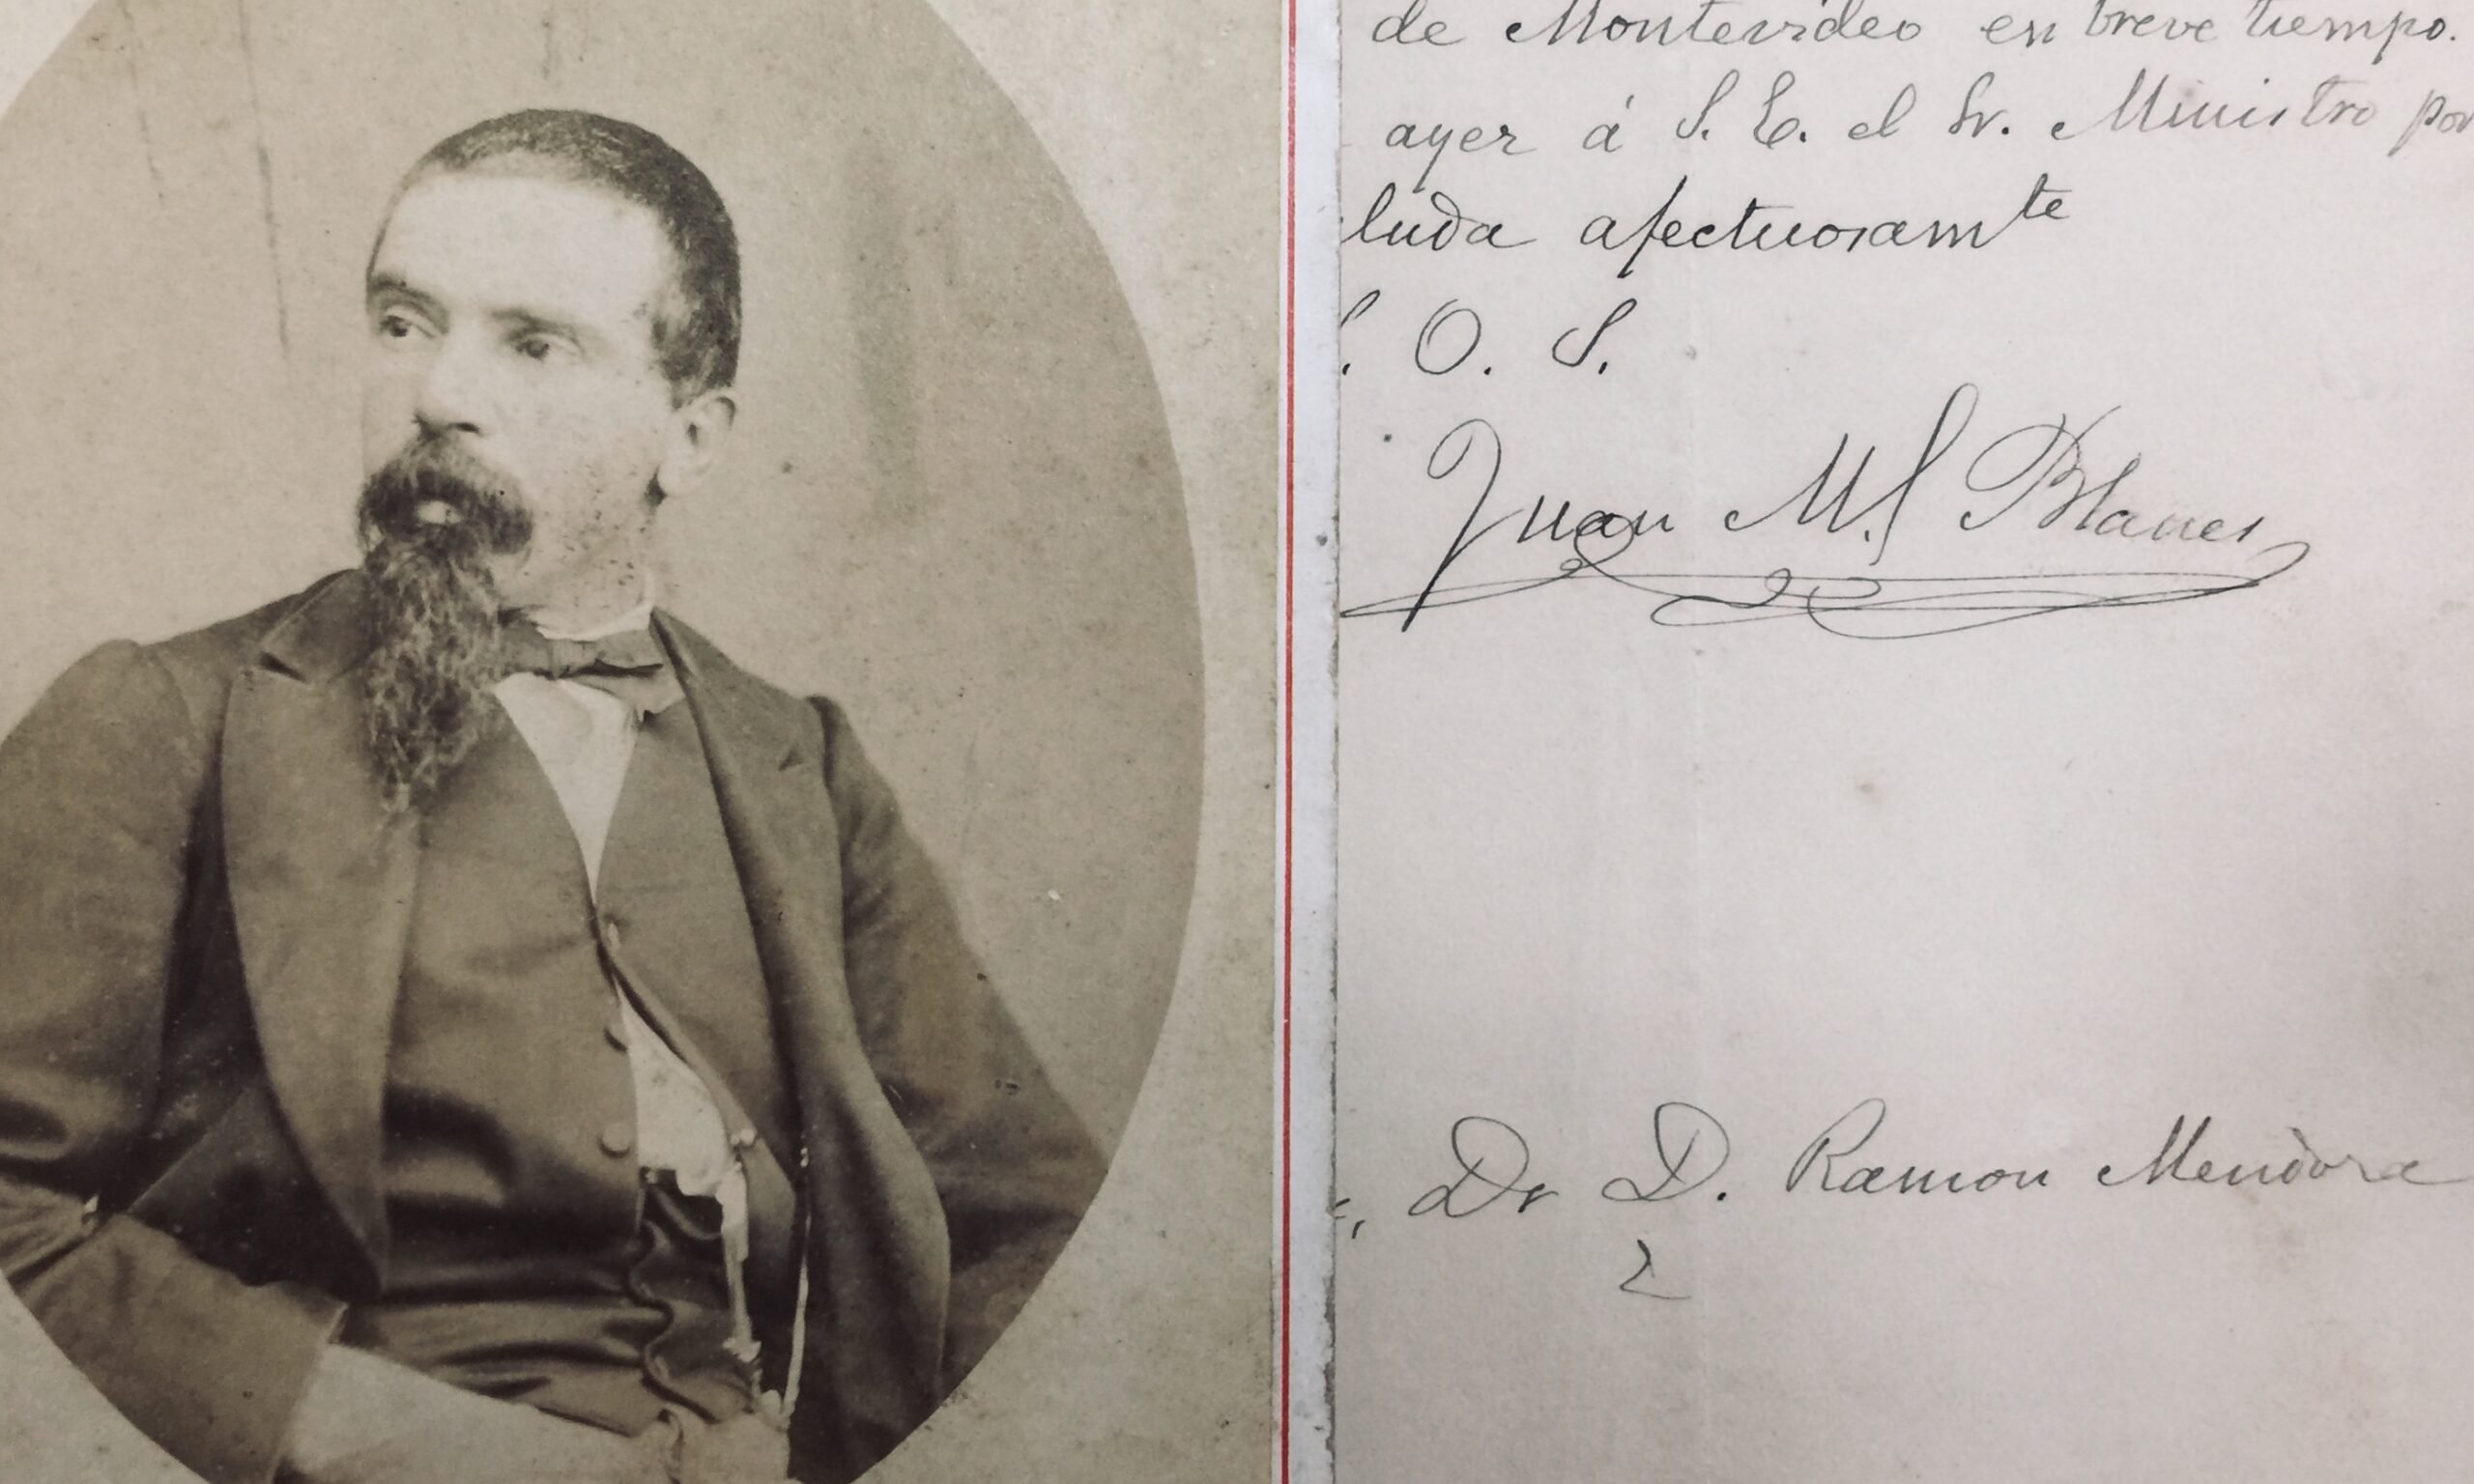 de Montevideo en breve tiempo.
ayer á S. E. el Sr. Ministro por
luda afectuosamte
S. O. S.
Juan M. Blanes
Dr D. Ramon Mendoza